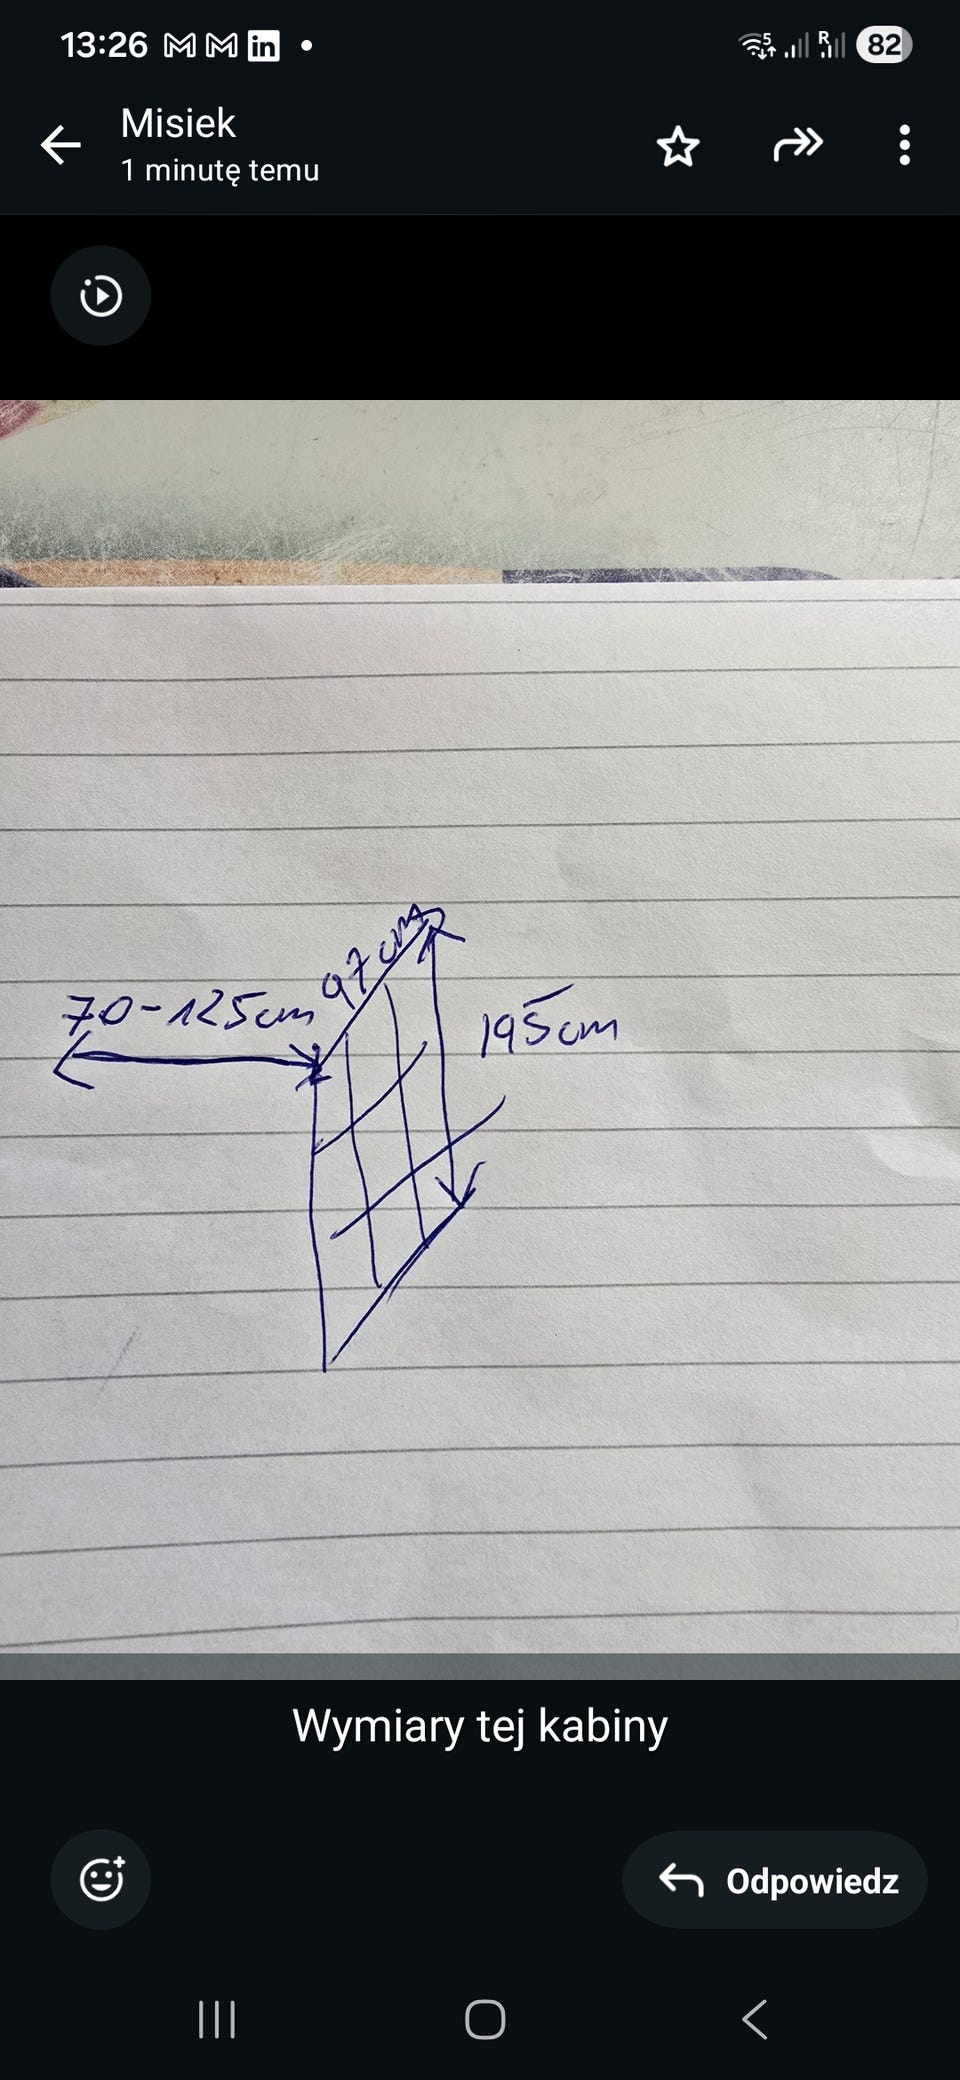 13:26
R
82
Misiek
1 minutę temu
97 cm
70-125cm
195cm
Wymiary tej kabiny
Odpowiedz